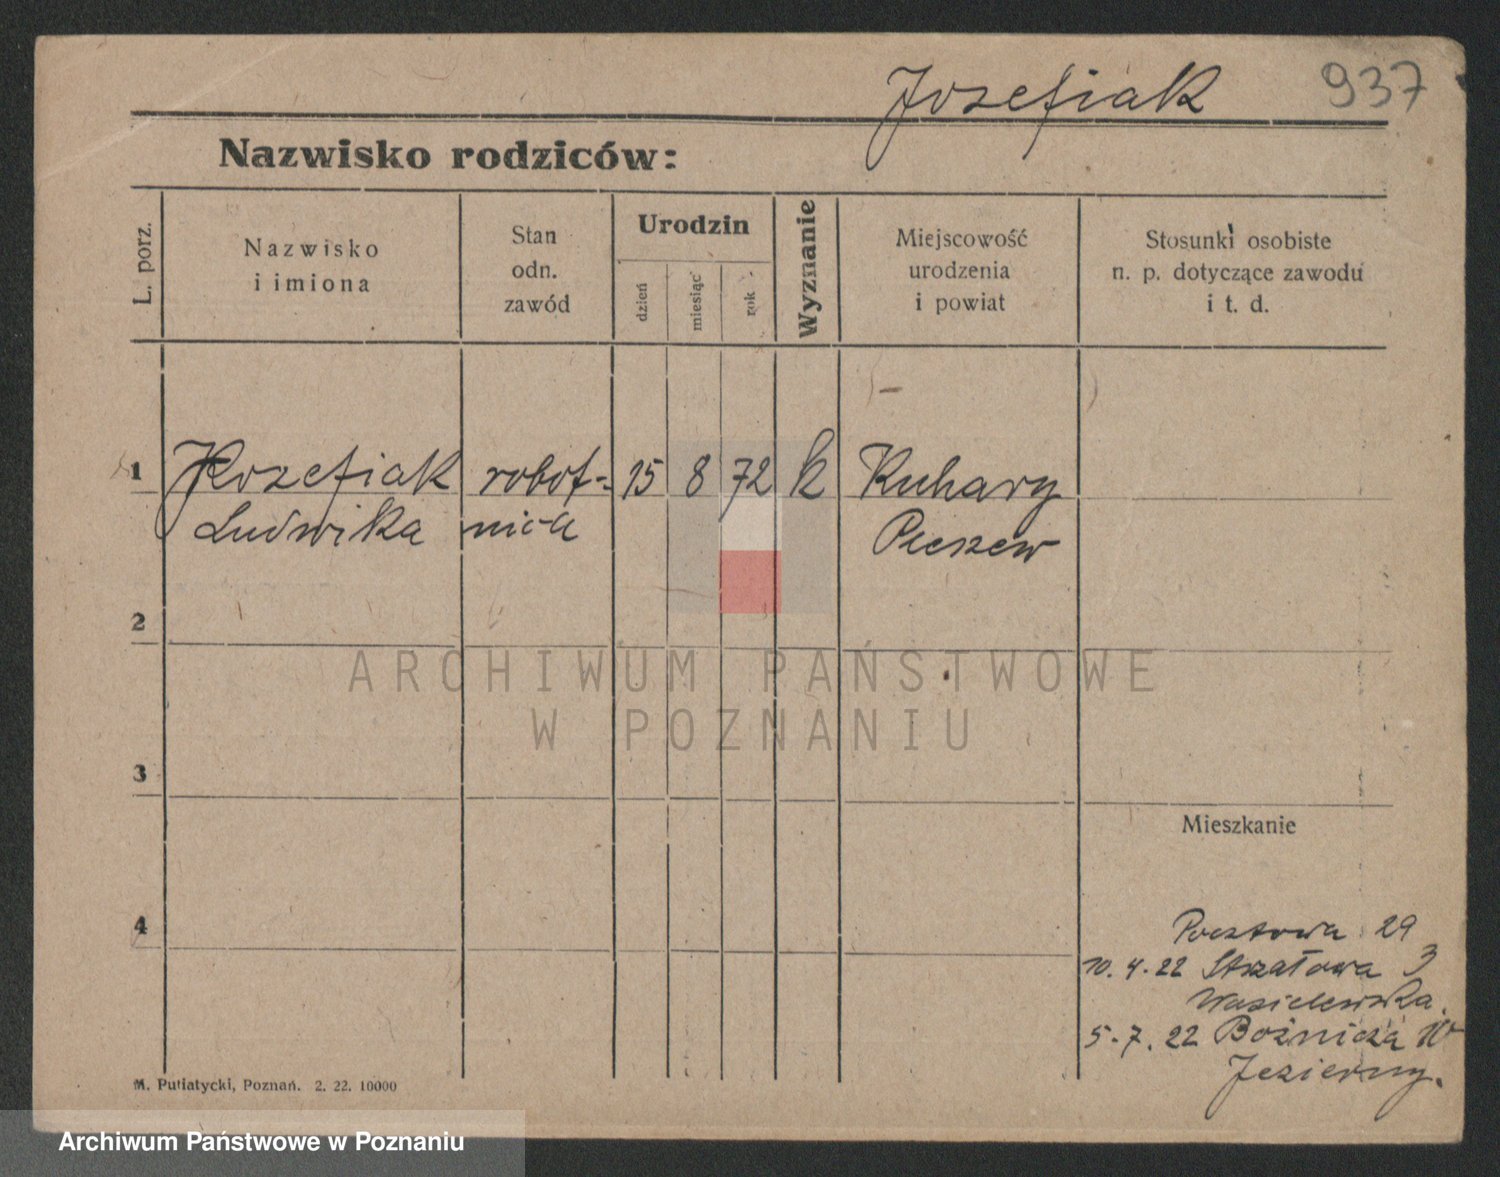 Jozefiak 937
Nazwisko rodziców:
L. porz.
Nazwisko
i imiona
Stan
odn.
zawód
Urodzin
dzień
miesiąc
rok
Wyznanie
Miejscowość
urodzenia
i powiat
Stosunki osobiste
n. p. dotyczące zawodu
i t. d.
1 Jozefiak robot- 15 8 72 k Kuhary
Ludwika nica Pleszew
2
ARCHIWUM PAŃSTWOWE
W POZNANIU
3
Mieszkanie
4
Pocztowa 29
10.4.22 Strzałowa 3
Wasielewska.
5.7.22 Bożnicza 10
Jezierny.
M. Putiatycki, Poznań. 2. 22. 10000
Archiwum Państwowe w Poznaniu